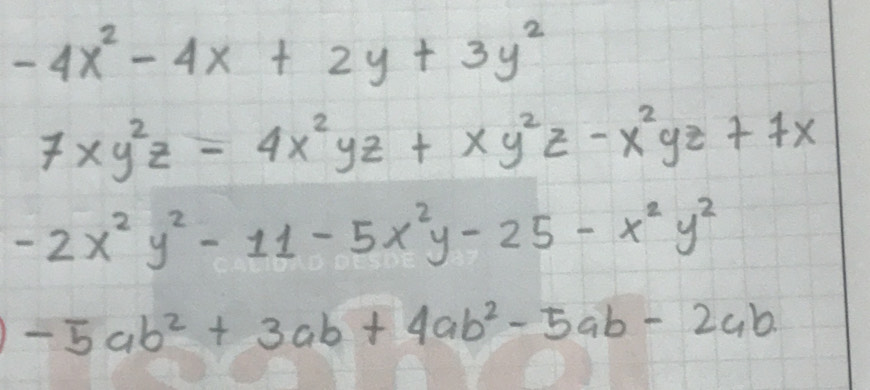 -4x² - 4x + 2y + 3y²
7xy²z = 4x²yz + xy²z - x²yz + 7x
-2x²y² - 11 - 5x²y - 25 - x²y²
CALIDAD DESDE
) -5ab² + 3ab + 4ab² - 5ab - 2ab.
Isabel